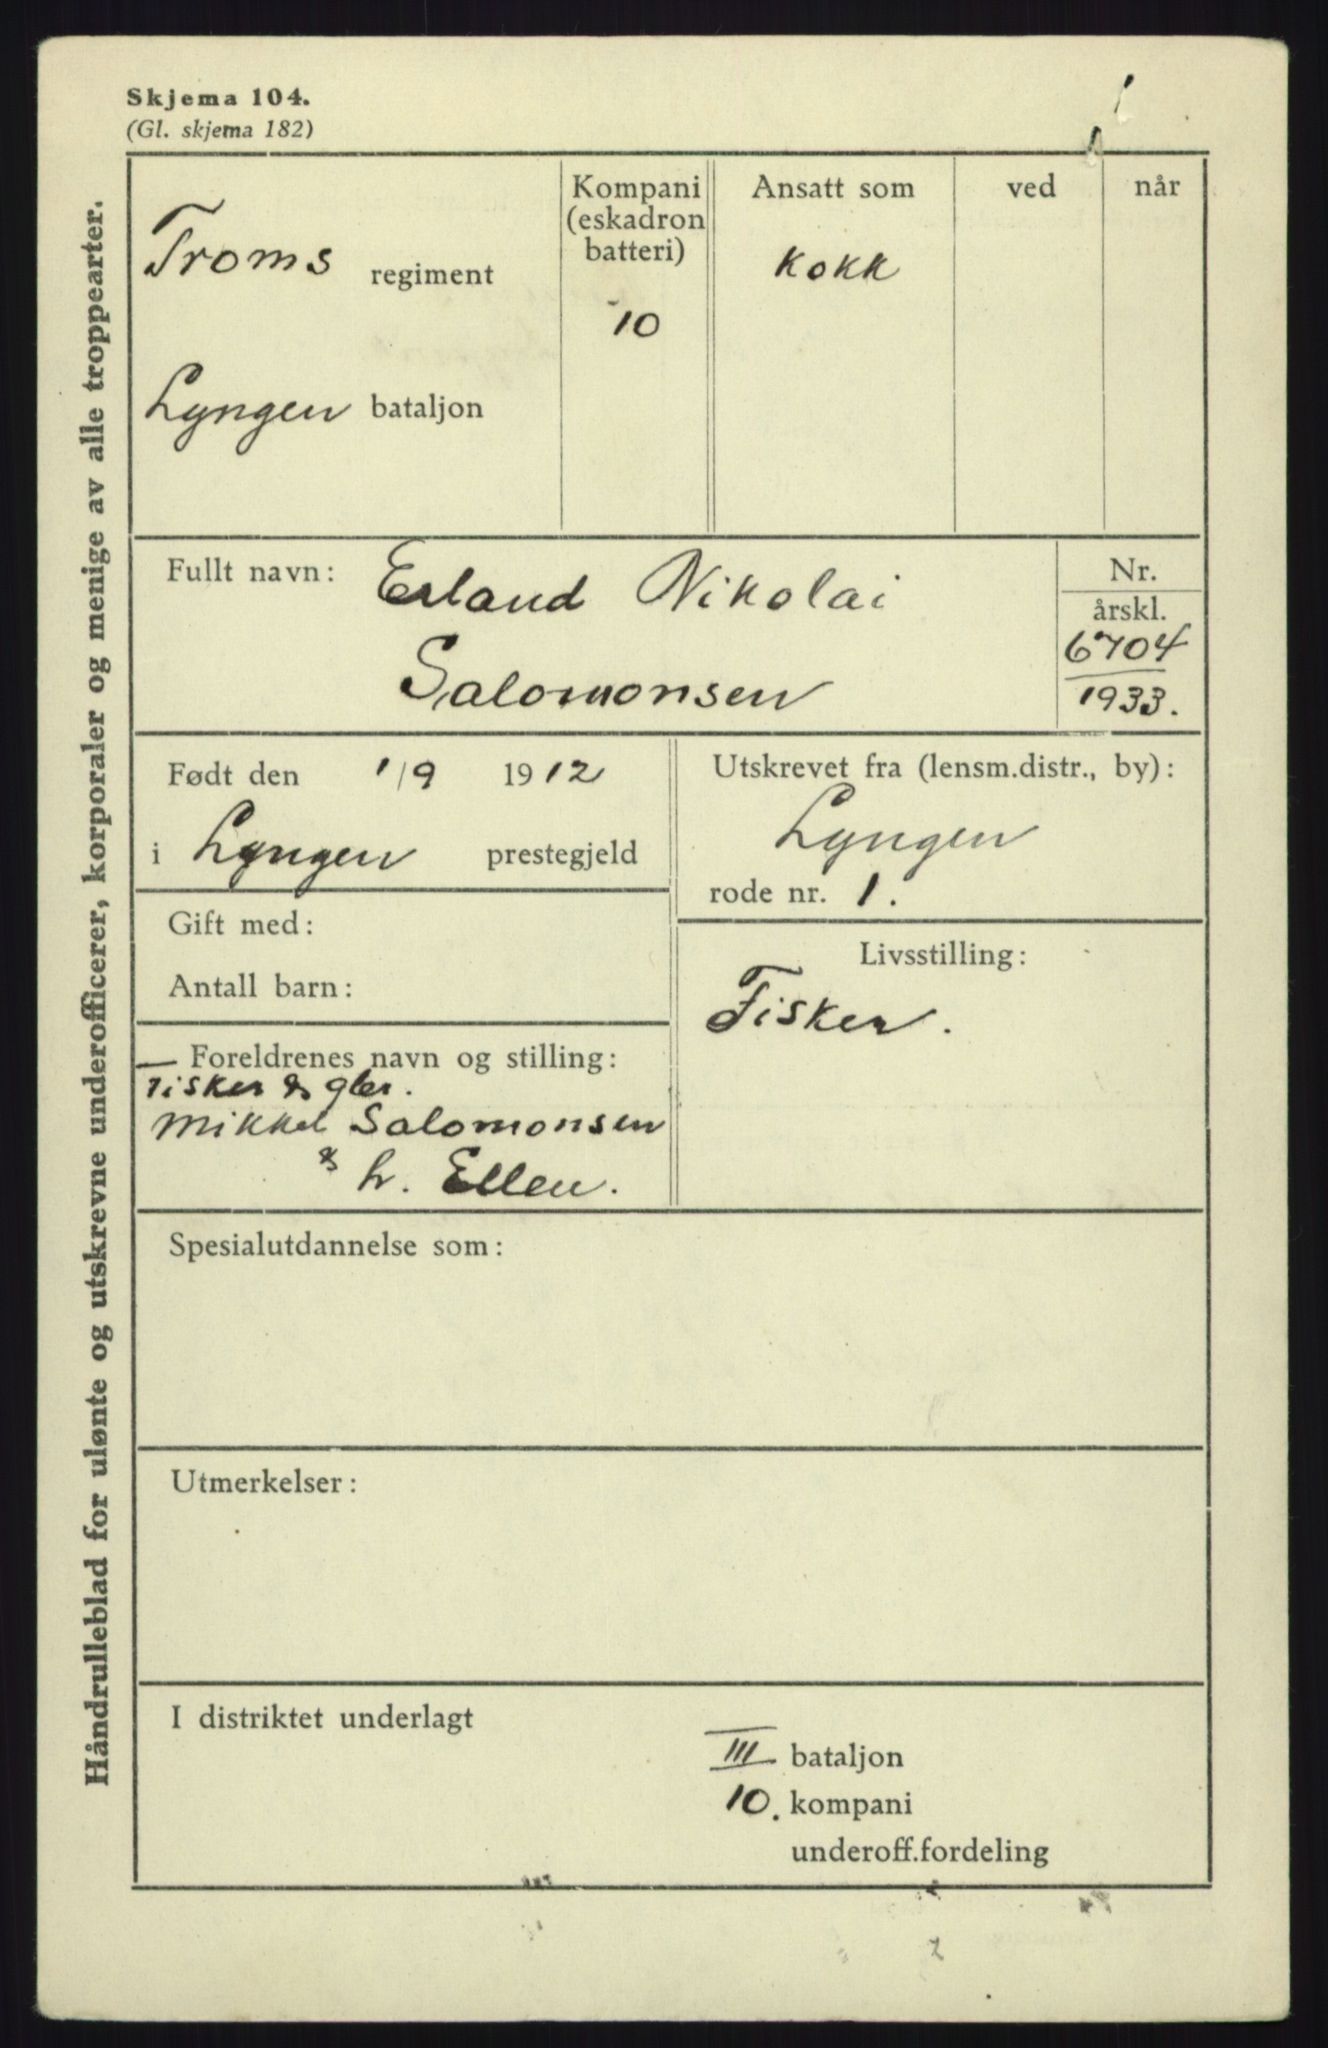 Skjema 104.
(Gl. skjema 182)
Håndrulleblad for ulønte og utskrevne underofficerer, korporaler og menige av alle troppearter.
Troms regiment
Lyngen bataljon
Kompani
(eskadron
batteri)
10
Ansatt som
Kokk
ved
når
Fullt navn: Erland Nikolai
Salomonsen
Nr.
årskl.
6704
1933.
Født den 1/9 1912
i Lyngen prestegjeld
Utskrevet fra (lensm.distr., by):
Lyngen
rode nr. 1.
Gift med:
Antall barn:
Livsstilling:
Fisker.
Foreldrenes navn og stilling:
Fisker & gbr.
Mikkel Salomonsen
& h. Ellen.
Spesialutdannelse som:
Utmerkelser:
I distriktet underlagt
III bataljon
10. kompani
underoff.fordeling